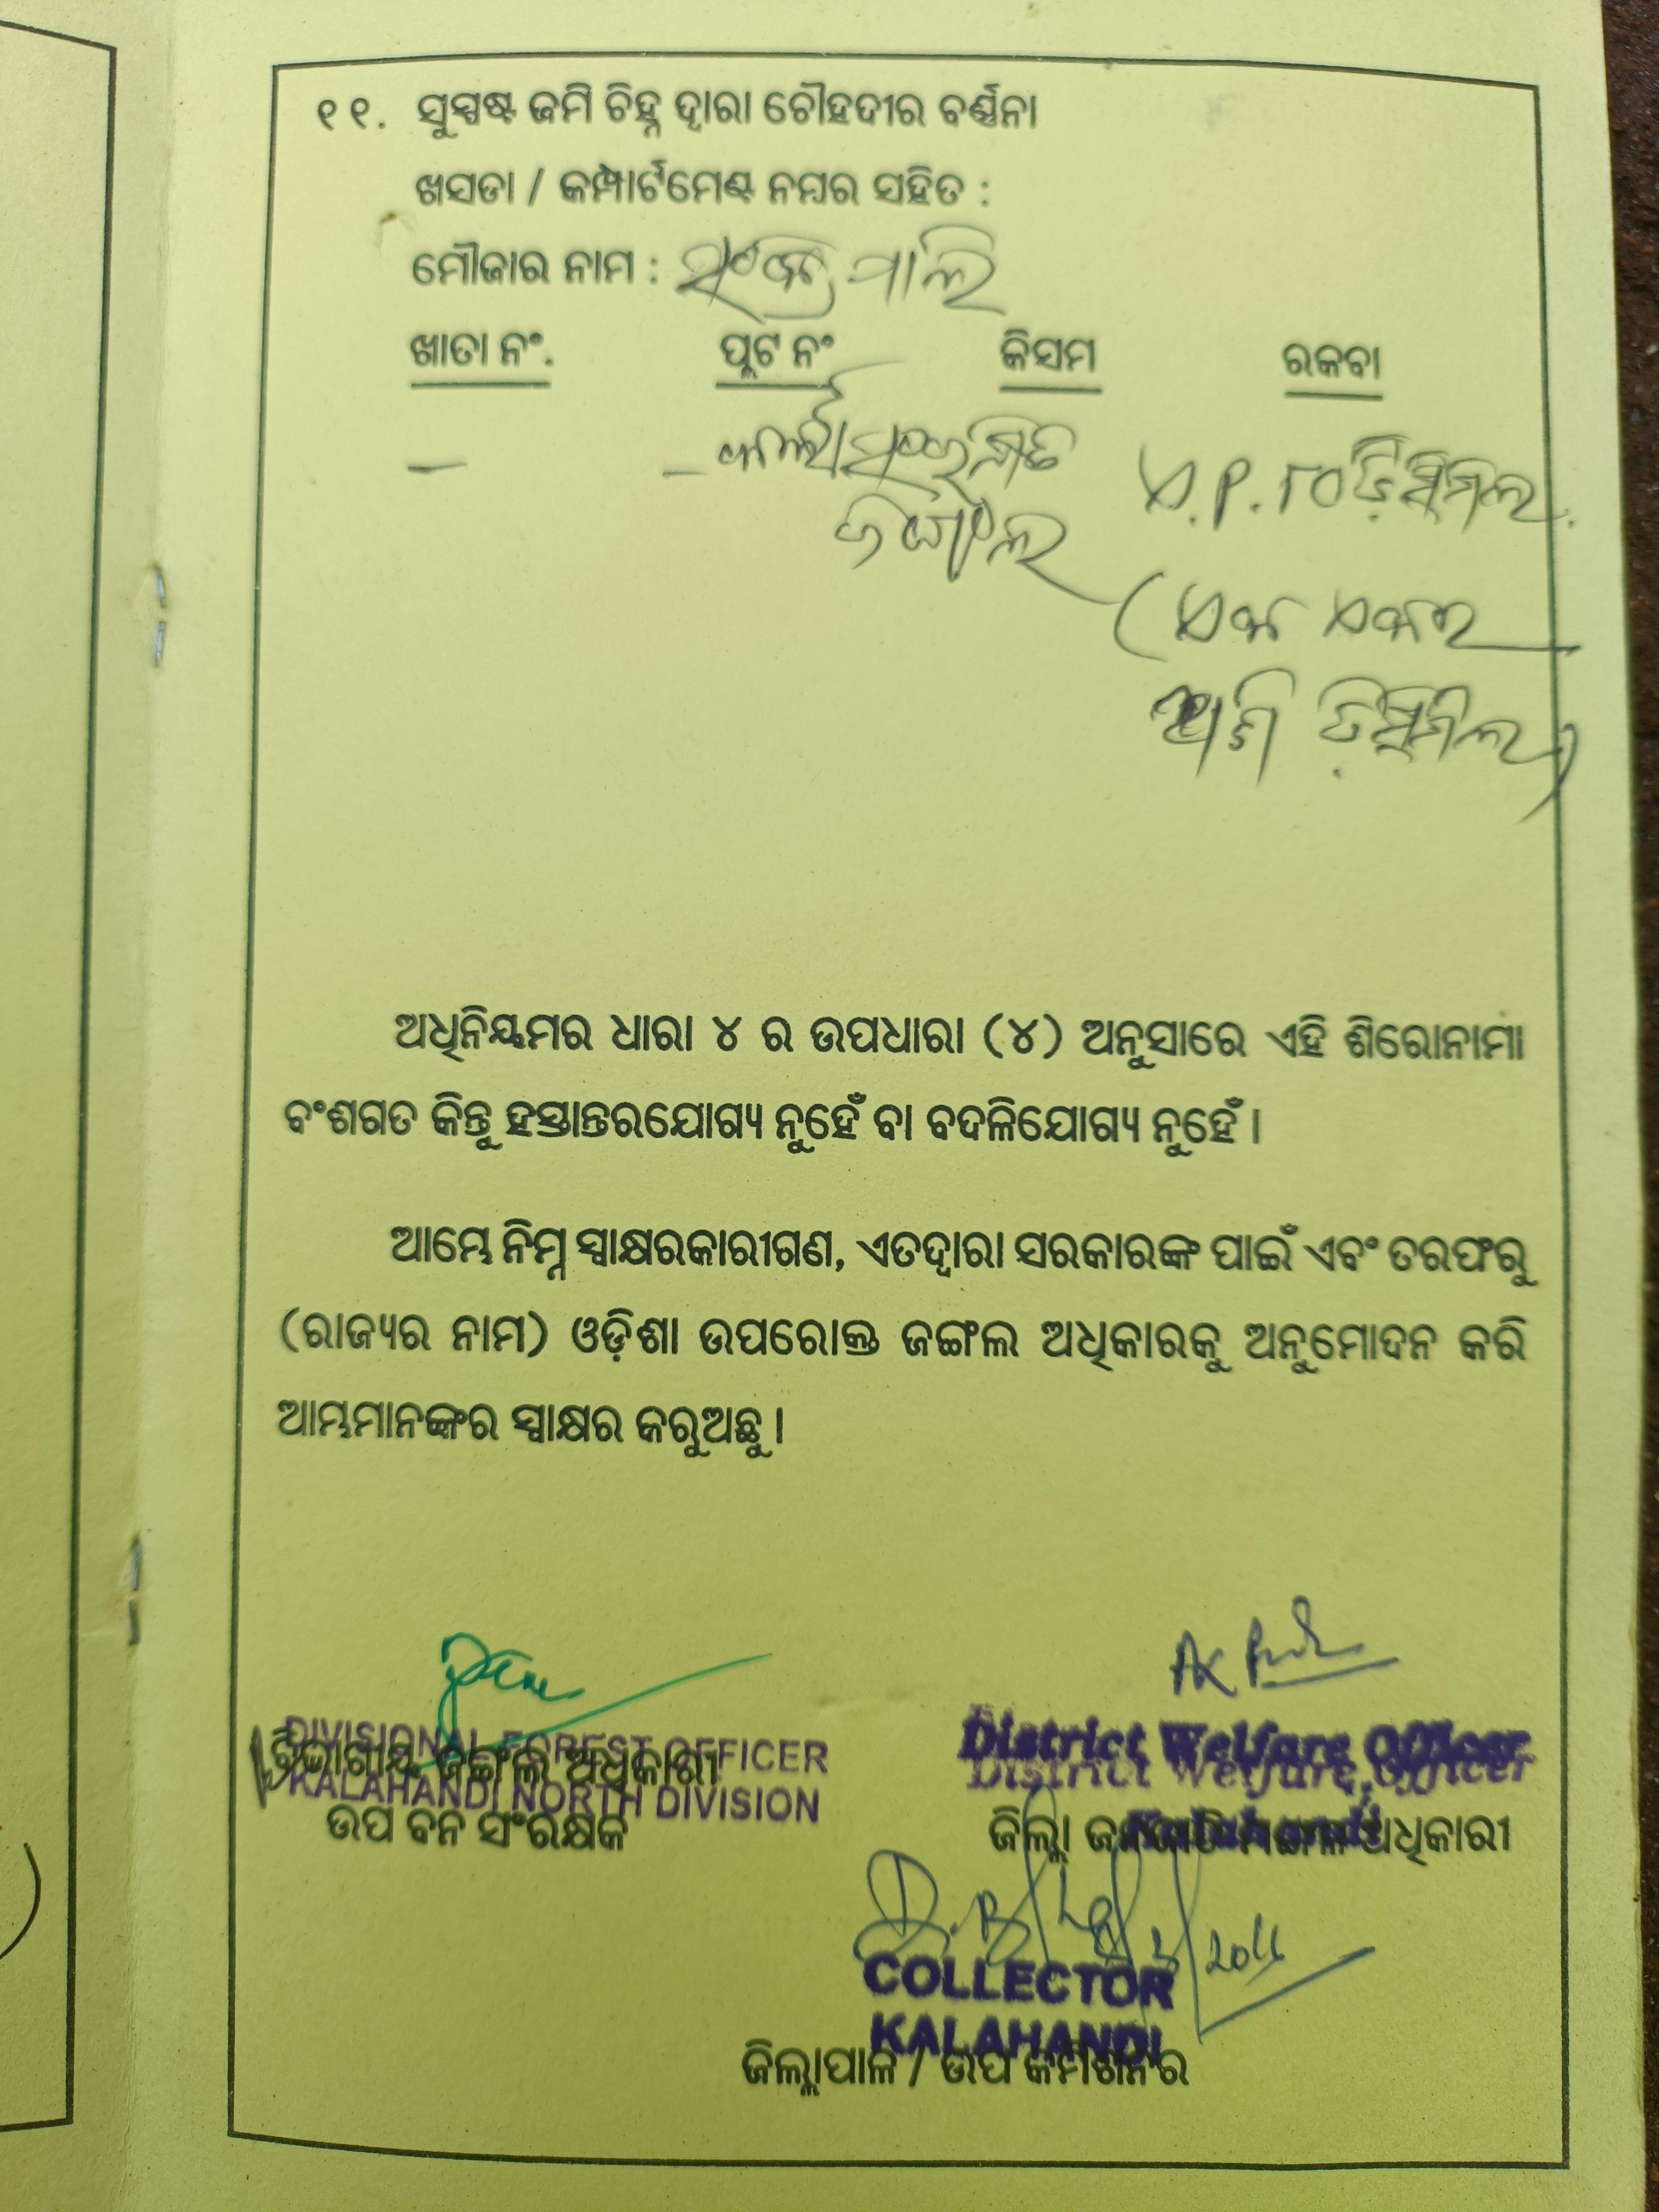 ୧୧. ସୁସ୍ପଷ୍ଟ ଜମି ଚିହ୍ନ ଦ୍ୱାରା ଚୌହଦୀର ବର୍ଣ୍ଣନା
ଖସଡା / କମ୍ପାର୍ଟମେଣ୍ଟ ନମ୍ବର ସହିତ :
ମୌଜାର ନାମ : ମାଲି
ଖାତା ନଂ. ପ୍ଲଟ ନଂ କିସମ ରକବା
— ଡିସିମିଲ
ଜଙ୍ଗଲ
(ଏକ ଏକର
ଅଶି ଡିସିମିଲ)
ଅଧିନିୟମର ଧାରା ୪ ର ଉପଧାରା (୪) ଅନୁସାରେ ଏହି ଶିରୋନାମା
ବଂଶଗତ କିନ୍ତୁ ହସ୍ତାନ୍ତରଯୋଗ୍ୟ ନୁହେଁ ବା ବଦଳିଯୋଗ୍ୟ ନୁହେଁ।
ଆମ୍ଭେ ନିମ୍ନ ସ୍ୱାକ୍ଷରକାରୀଗଣ, ଏତଦ୍ୱାରା ସରକାରଙ୍କ ପାଇଁ ଏବଂ ତରଫରୁ
(ରାଜ୍ୟର ନାମ) ଓଡ଼ିଶା ଉପରୋକ୍ତ ଜଙ୍ଗଲ ଅଧିକାରକୁ ଅନୁମୋଦନ କରି
ଆମ୍ଭମାନଙ୍କର ସ୍ୱାକ୍ଷର କରୁଅଛୁ।
DIVISIONAL FOREST OFFICER
ବିଭାଗୀୟ ଜଙ୍ଗଲ ଅଧିକାରୀ
KALAHANDI NORTH DIVISION
ଉପ ବନ ସଂରକ୍ଷକ
District Welfare Officer
Kalahandi
ଜିଲ୍ଲା ଜନଜାତି ମଙ୍ଗଳ ଅଧିକାରୀ
COLLECTOR
KALAHANDI
ଜିଲ୍ଲାପାଳ / ଉପ କମିଶନର